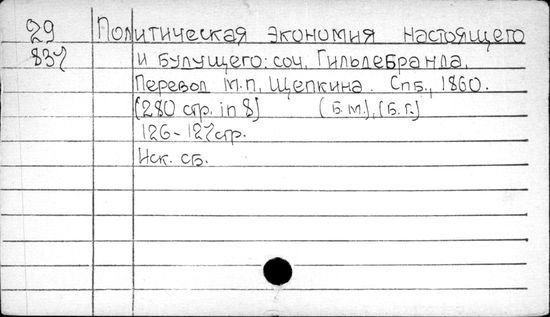 29 Политическая экономия настоящего
837 и будущего: соч. Гильдебранда.
Перевод М.П. Щепкина. Спб., 1860.
(280 стр. in 8) (б.м.), (б.г.)
126-127 стр.
Иск. сб.